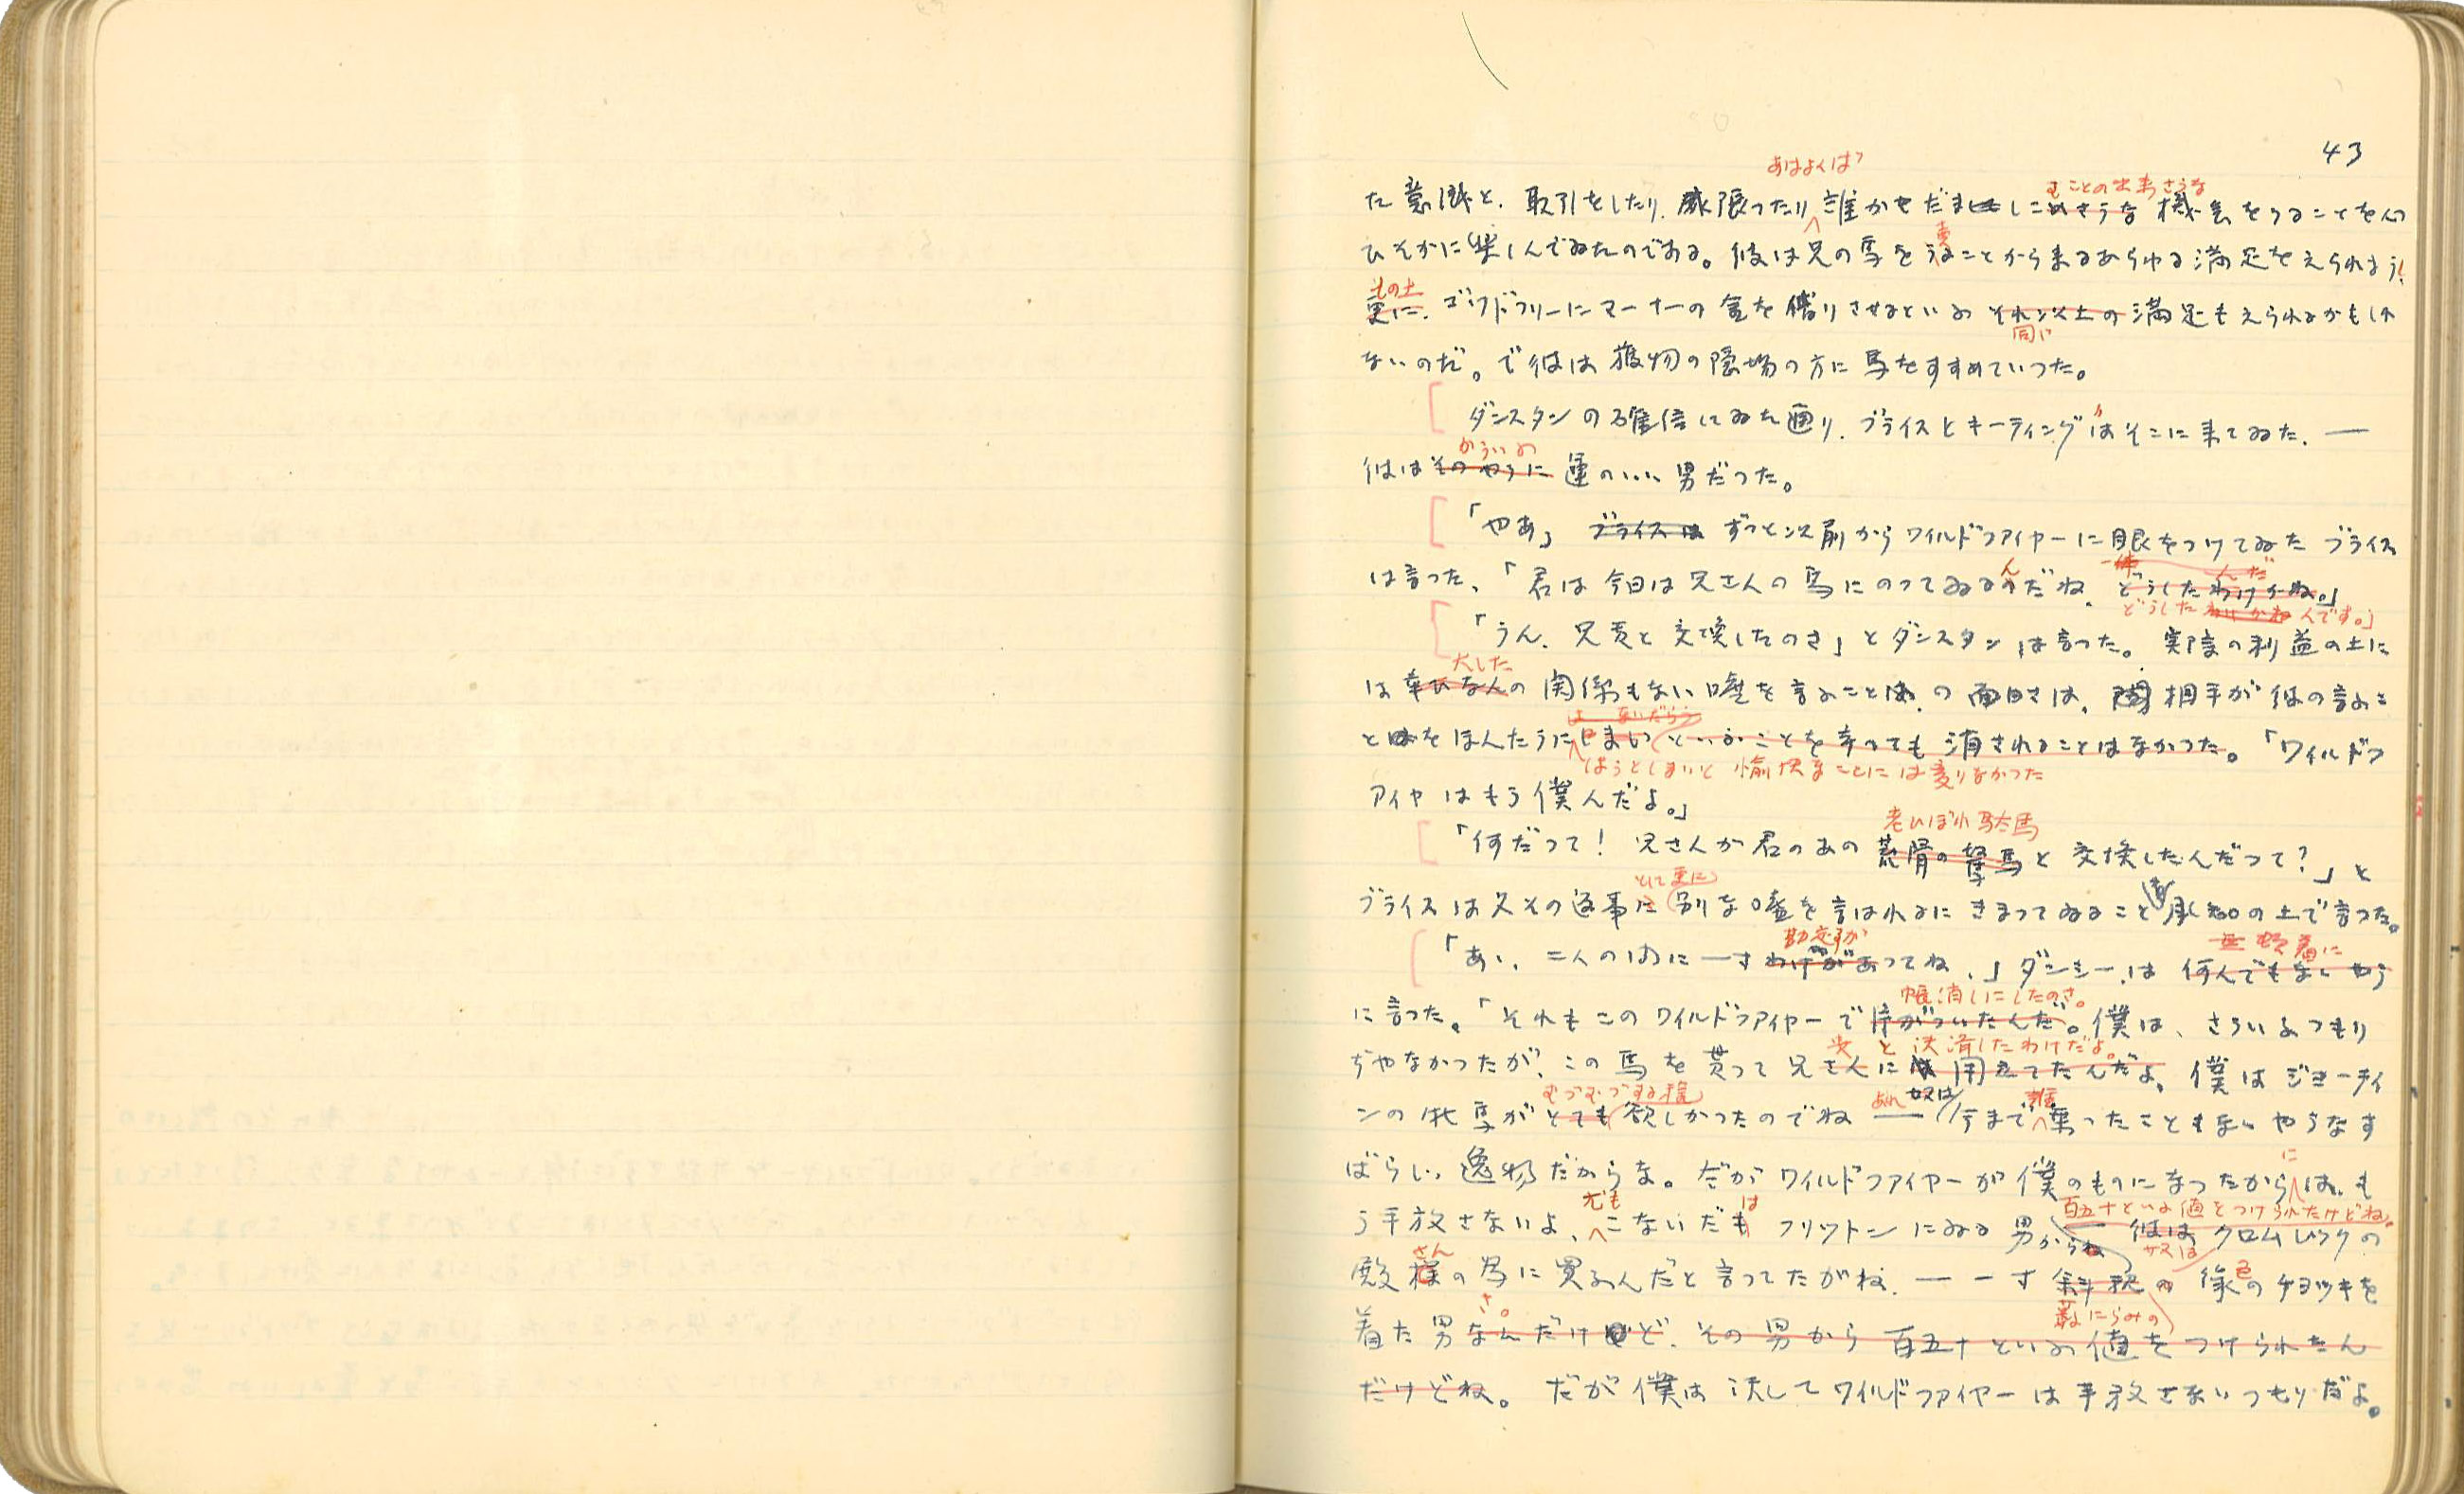 43
あはよくば
むことの出来さうな
た意識と、取引をしたり、威張つたり誰かをだましこめさうな機会をうることを心
ひそかに楽しんでゐたのである。彼は兄の馬をうることから来るあらゆる満足をえられよう!
売
その上
更に、ゴッドフリーにマーナーの金を借りさせるといふそれ以上の満足もえられるかもしれ
同じ
ないのだ。で彼は獲物の隠場の方に馬をすすめていつた。
ダンスタンの確信してゐた通り、ブライスとキーティングはそこに来てゐた、―
かういふ
彼はそのやうに運のいい男だつた。
「やあ」ブライスは ずつと以前からワイルドファイヤーに眼をつけてゐたブライス
一体 んだ
は言つた、「君は今日は兄さんの馬にのつてゐるのだね、どうしたわけかね。」
ん
どうしたわけかねんです。」
「うん、兄貴と交換したのさ」とダンスタンは言つた。実際の利益の上に
大した
は幸ひなんの関係もない嘘を言ふことの面白さは、相手が彼の言ふこ
は ないだらう
とをほんたうにしまいといふことを幸つても消されることはなかつた。「ワイルドフ
はうとしまいと愉快なことには変りなかつた
アイヤはもう僕んだよ。」
老いぼれ駄馬
「何だつて! 兄さんが君のあの荒骨の駑馬と交換したんだつて?」と
として更に
ブライスは又その返事に別な嘘を言はれるにきまつてゐること承知の上で言つた。
を
勘定が
無頓着に
「あゝ、二人の間に一寸わけがあつてね、」ダンシーは何んでもないやう
帳消しにしたのさ。
に言つた。「それもこのワイルドファイヤーで片がついたんだ。僕は、さういふつもり
と決済したわけだよ。
ぢやなかつたが、この馬を貰つて兄さんに用立てたんだよ、僕はジョーティ
むづむづする程
あれ奴は 誰
ンの牝馬がとても欲しかつたのでね ― 今まで乗つたこともないやうなす
ばらしい逸物だからな。だがワイルドファイヤーが僕のものになつたからは、も
に
尤も は
百五十といふ値をつけられたけどね。
う手放さないよ、こないだもフリットンにゐる男からね ― 彼はクロムレックの
さん
殿様の為に買ふんだと言つてたがね、― 一寸斜視の緑のチョッキを
色
さ。
藪にらみの
着た男なんだけど、その男から百五十といふ値をつけられたん
だけどね。だが僕は決してワイルドファイヤーは手放さないつもりだよ。